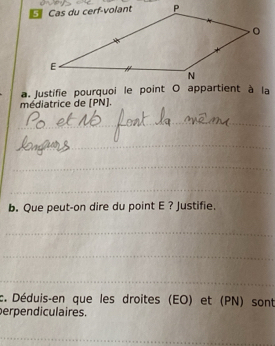 5 Cas du cerf-volant
P
O
E
N
a. Justifie pourquoi le point O appartient à la
médiatrice de [PN].
Po et No font la même
longueurs
b. Que peut-on dire du point E ? Justifie.
c. Déduis-en que les droites (EO) et (PN) sont
perpendiculaires.